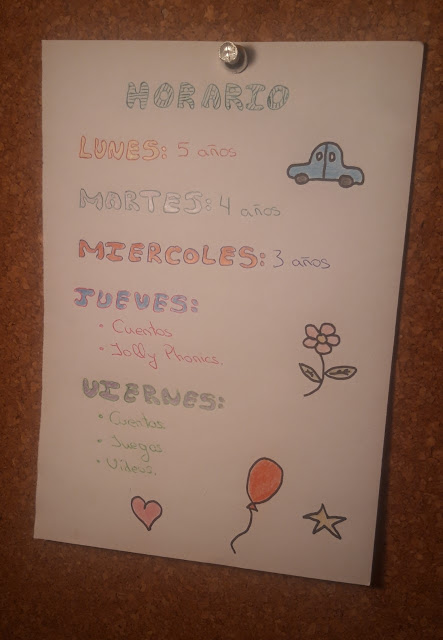 HORARIO
LUNES: 5 años
MARTES: 4 años
MIERCOLES: 3 años
JUEVES:
• Cuentos
• Jolly Phonics.
VIERNES:
• Cuentos
• Juegos
• Videos.